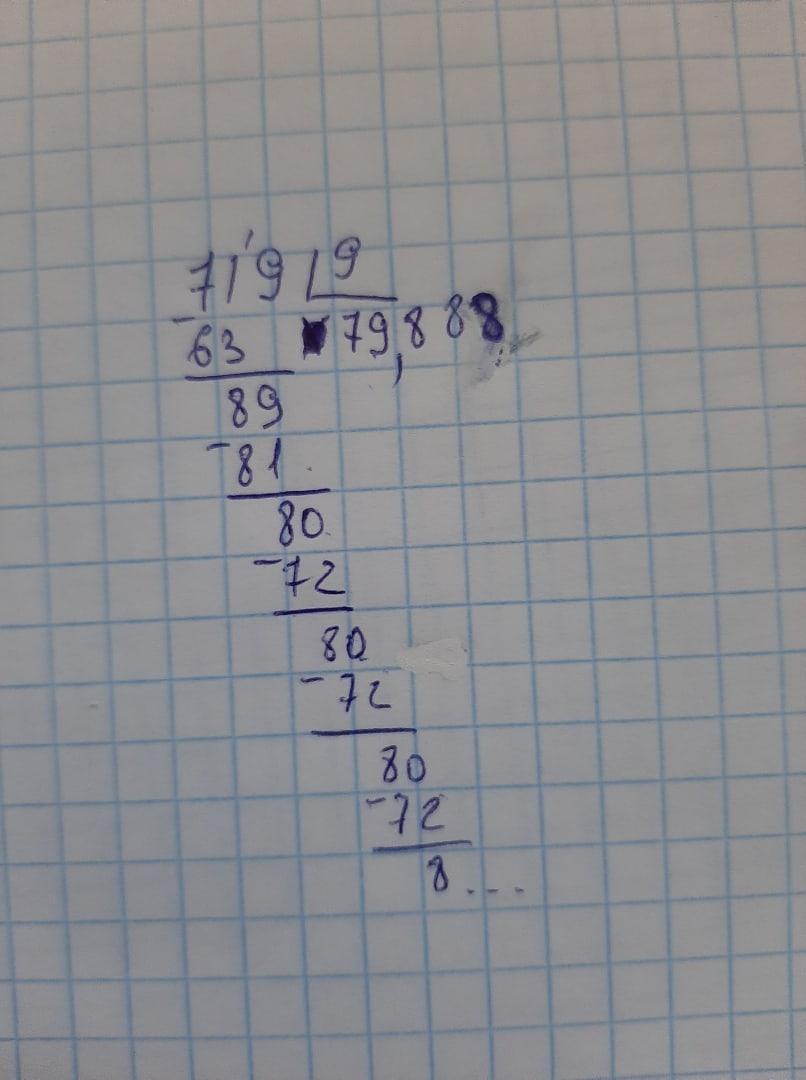 719 9
-63 79,888
89
-81
80
-72
80
-72
80
-72
8...